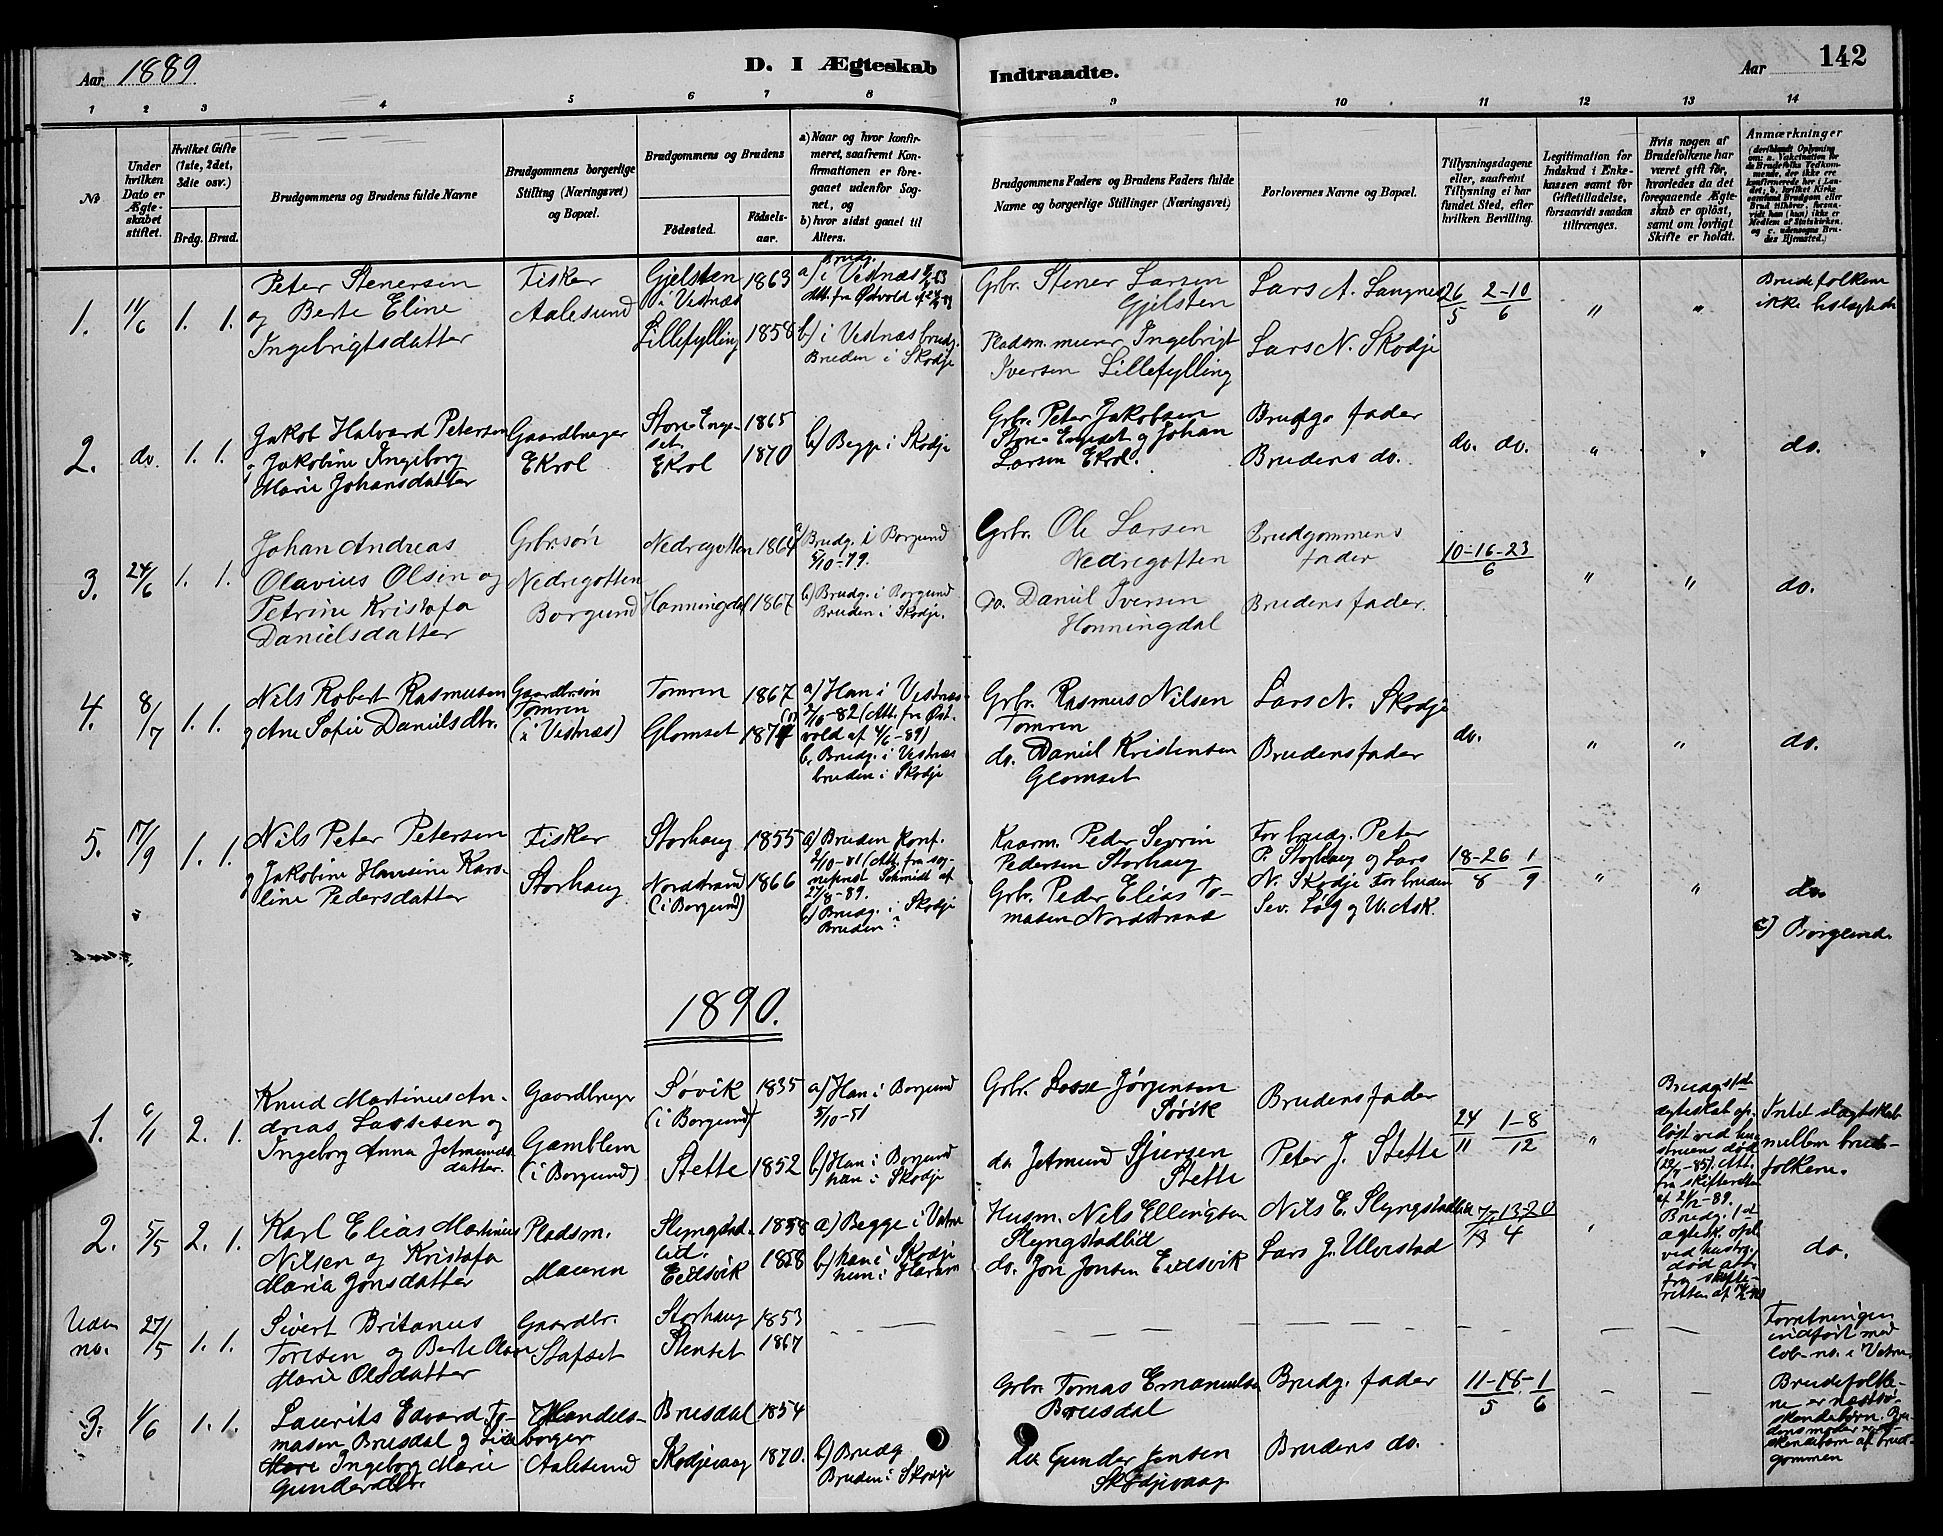 Aar 1889.
D. I Ægteskab
Indtraadte.
Aar
142
1 2 3 4 5 6 7 8 9 10 11 12 13 14
No
Under hvilken Dato er Ægteskabet stiftet.
Hvilket Gifte (1ste, 2det, 3die osv.)
Brdg. Brud.
Brudgommens og Brudens fulde Navne
Brudgommens borgerlige Stilling (Næringsvei) og Bopæl.
Brudgommens og Brudens
Fødested.
Fødselsaar.
a) Naar og hvor konfirmeret, saafremt Konfirmationen er foregaaet udenfor Sognet, og
b) hvor sidst gaaet til Alters.
Brudgommens Faders og Brudens Faders fulde Navne og borgerlige Stillinger (Næringsvei)
Forlovernes Navne og Bopæl.
Tillysningsdagene eller, saafremt Tillysning ei har fundet Sted, efter hvilken Bevilling.
Legitimation for Indskud i Enkekassen samt for Giftetilladelse, forsaavidt saadan tiltrænges.
Hvis nogen af Brudefolkene har været gift før, hvorledes da det foregaaende Ægteskab er opløst, samt om lovligt Skifte er holdt.
Anmærkninger
1. 11/6 1. 1.
Peter Stenersen
og Berte Eline
Ingebrigtsdatter
Fisker
Aalesund
Gjelsten
i Vestnæs
Lillefylling
1863
1858
a) Brudg. i Vestnæs
b) i Vestnæs brudg.
Bruden i Skodje
Grbr. Stener Larsen
Gjelsten
Pladsm. murer Ingebrigt
Iversen Lillefylling
Lars A. Langnes
Lars N. Skodje
26/5 2-10/6
" "
Brudefolkene
ikke beslægtede
2. do. 1. 1.
Jakob Halvard Petersen
og Jakobine Ingeborg
Marie Johansdatter
Gaardbruger
Ekrol
Store-Engeset
Ekrol
1865
1870
b) Begge i Skodje
Grbr. Peter Jakobsen
Store-Engeset og Johan
Larsen Ekrol.
Brudgs fader
Brudens do.
do. do.
" "
do.
3. 24/6 1. 1.
Johan Andreas
Olavius Olsen og
Petrine Kristofa
Danielsdatter
Grbr.søn
Nedregotten
Borgund
Nedregotten
Honningdal
1864
1867
a) Brudg. i Borgund
5/10-79.
b) Brudg. i Borgund
Bruden i Skodje.
Grbr. Ole Larsen
Nedregotten
Do. Daniel Iversen
Honningdal
Brudgommens
fader
Brudens fader.
10-16-23/6
" "
do.
4. 8/7 1. 1.
Nils Robert Rasmusen
og Ane Sofie Danielsdtr.
Gaardbr.søn
Tomren
(i Vestnæs)
Tomren
Glomset
1867
1871
a) Han i Vestnæs
1/10-82 (Att. fra Østvold af 4/6-89)
b. Brudg. i Vestnæs
bruden i Skodje
Grbr. Rasmus Nilsen
Tomren
do. Daniel Kristensen
Glomset
Lars N. Skodje
Brudens fader
do.
" "
do.
5. 17/9 1. 1.
Nils Peter Petersen
og Jakobine Hansine Karoline Pedersdatter
Fisker
Storhaug
Storhaug
Nordstrand
(i Borgund)
1855
1866
a) Bruden konf.
2/10-81 (Att. fra sogneprest Schmidt af
27/8-89.
b) Brudg. i Skodje
Bruden ?
Kaarm. Peder Sevrin
Pedersen Storhaug
Grbr. Peder Elias Tomasen Nordstrand
For brudg. Peter
P. Storhaug og Lars
N. Skodje For bruden
Sev. Løvg og W. Ask.
18-26/8 1/9
" "
do.
c) Borgund.
1890.
1. 6/1 2. 1.
Knud Martinus Andreas Lassesen og
Ingeborg Anna Jetmundsdatter.
Gaardbruger
Gamblem
(i Borgund)
Søvik
(i Borgund)
Stette
1835
1852
a) Han i Borgund
5/10-51
b) Han i Borgund
hun i Skodje
Grbr. Lasse Jørgensen
Søvik
do Jetmund Sjursen
Stette
Brudens fader
Peter J. Stette
24/11 1-8/12
"
Brudgs 1st
ægteskab opløst ved hustruens død
Att.
fra skifteretten
af 21/12-89.
Intet slægtskab
mellem brudefolkene.
2. 5/5 2. 1.
Karl Elias Martinius
Nilsen og Kristofa
Maria Jonsdatter
Pladsm.
Mauren
Slyngstadlid.
Eidsvik
1858
1858
a) Begge i Vatne
b) han i Skodje
hun i Haram
Husm. Nils Ellingsen
Slyngstadlid
do. Jon Jonsen Eidsvik
Nils E. Slyngstadlid
Lars J. Ulvestad
7-13-20/4
"
Brudg. 1st
ægtesk. opl.
ved hustrs.
død att.
fra skifteretten af
do.
Uden
no. 27/5 1. 1.
Sivert Britanus
Toresen og Berte Oline
Marie Olsdatter
Gaardbr.
Stafset
Storhaug
Stenset
1853
1867
Forretningen
indført med
løb-no. i Vatne
3. 1/6 1. 1.
Laurits Edvard Tomasen Brusdal og Lise
Ingeborg Marie
Gundersdtr.
Handelsborger
Aalesund
Brusdal
Skodjevaag
1854
1870.
b) Brudg
Bruden i Skodje
Grbr. Tomas Emanuelsen
Brusdal
do Gunder Jensen
Skodjevaag
Brudg. fader
Brudens do.
11-18/5 - 1/6
Brudefolkene er næstsøskendebørn. Brudens moder er søskendebarn af brudgommen